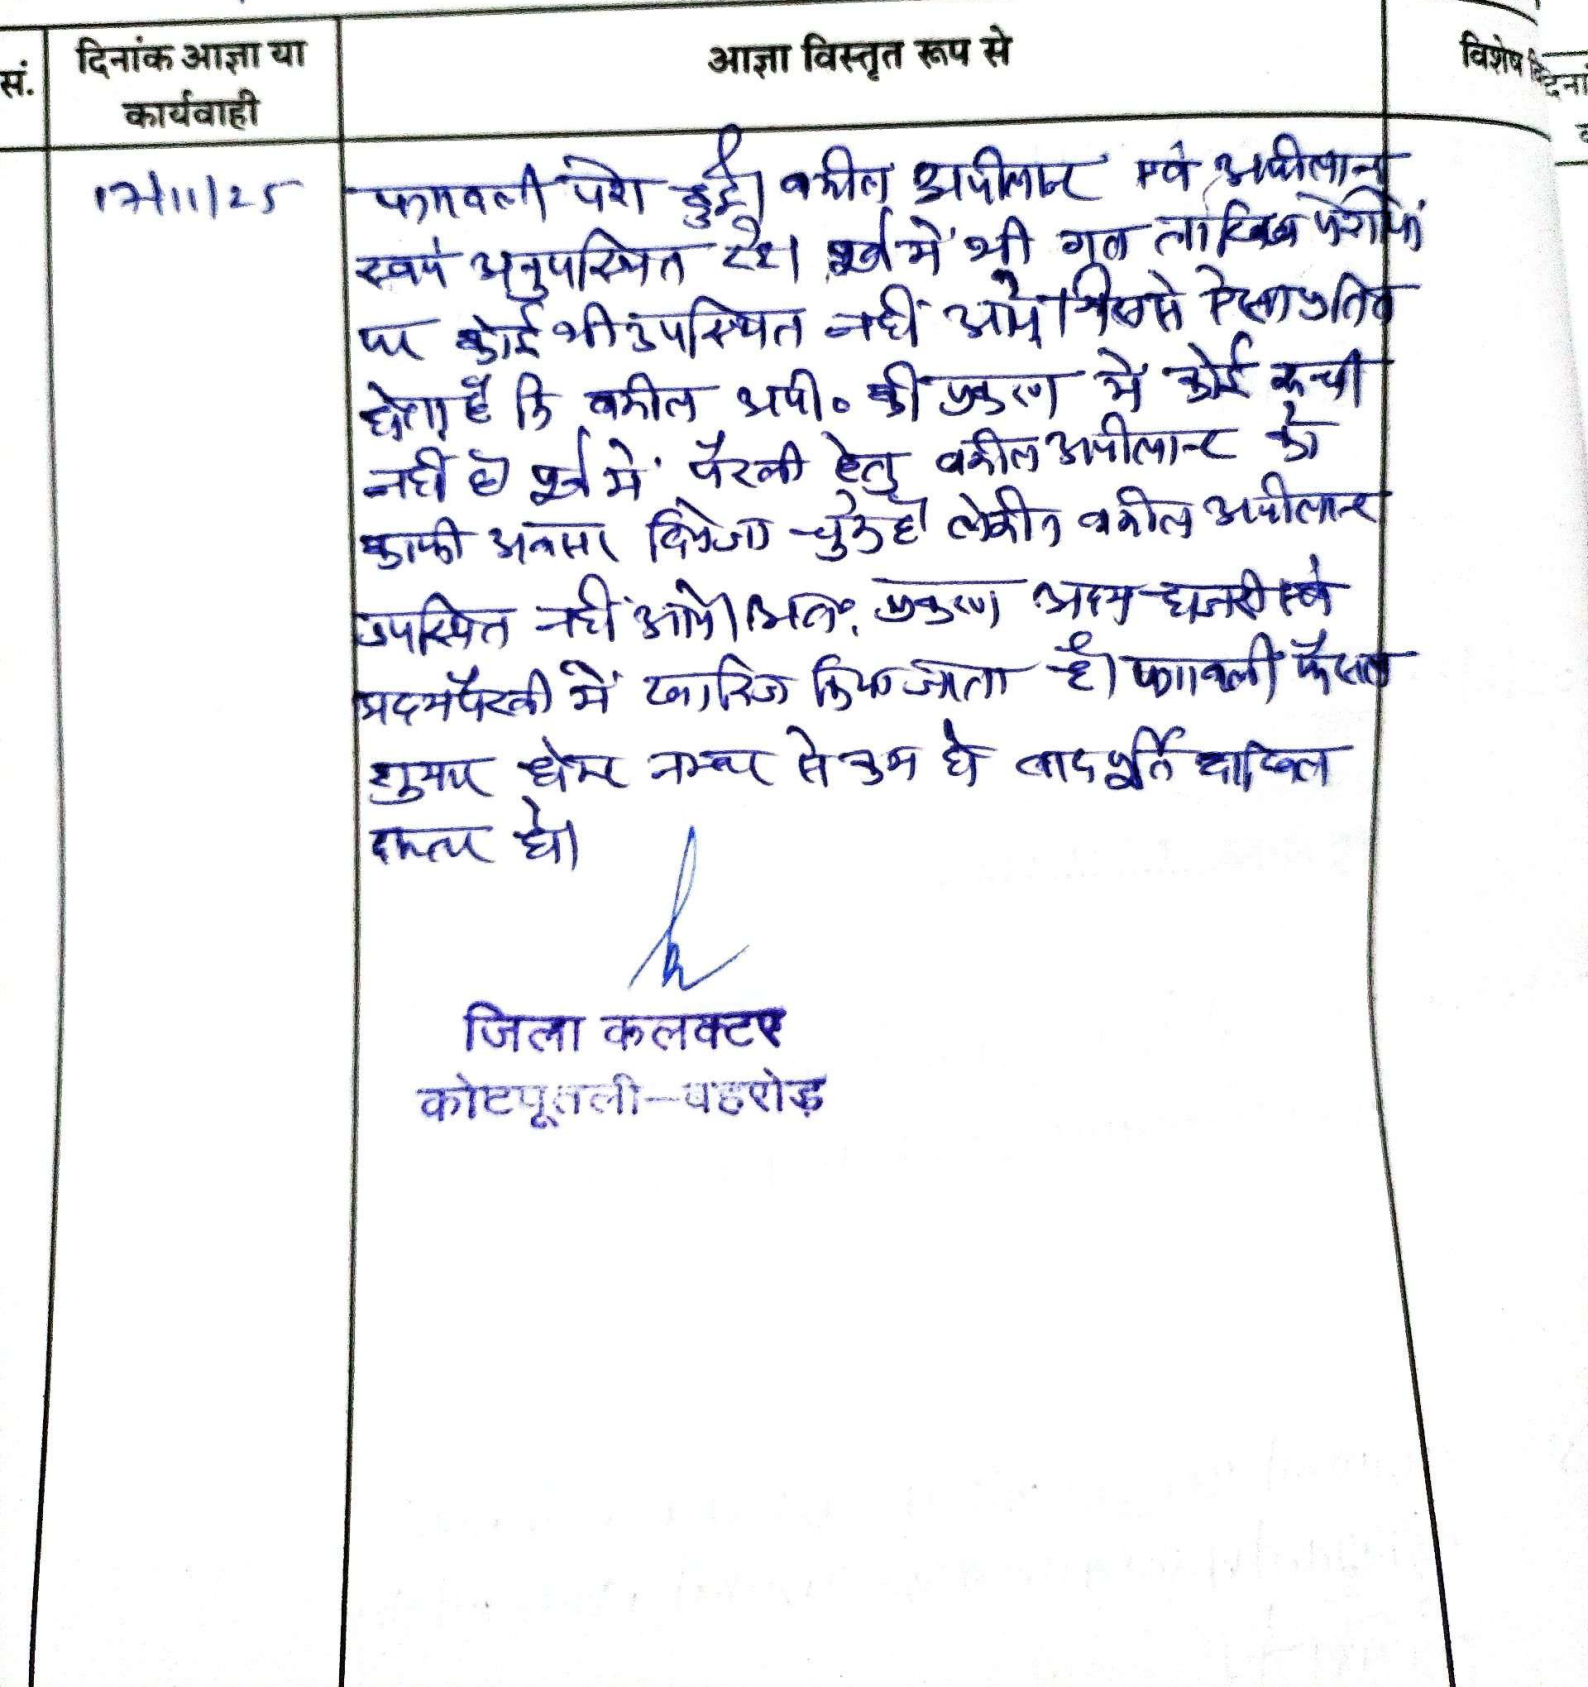 सं.
दिनांक आज्ञा या
कार्यवाही
आज्ञा विस्तृत रूप से
विशेष
17/11/25
पत्रावली पेश हुई। वकील अपीलान्ट एवं अपीलान्ट
स्वयं अनुपस्थित रहे। पूर्व में भी गत तारिख पेशीयों
पर कोई भी उपस्थित नहीं आये। जिससे ऐसा प्रतित
होता है कि वकील अपी० की प्रकरण में कोई रूची
नहीं है पूर्व में पैरवी हेतु वकील अपीलान्ट को
काफी अवसर दिये जा चुके है लेकीन वकील अपीलान्ट
उपस्थित नहीं आये। अतः प्रकरण अदम हाजरी एवं
अदम पैरवी में खारिज किया जाता है। पत्रावली फैसल
शुमार होकर नम्बर से कम हो बाद पूर्ति दाखिल
दफ्तर हो।
जिला कलक्टर
कोटपूतली-बहरोड़